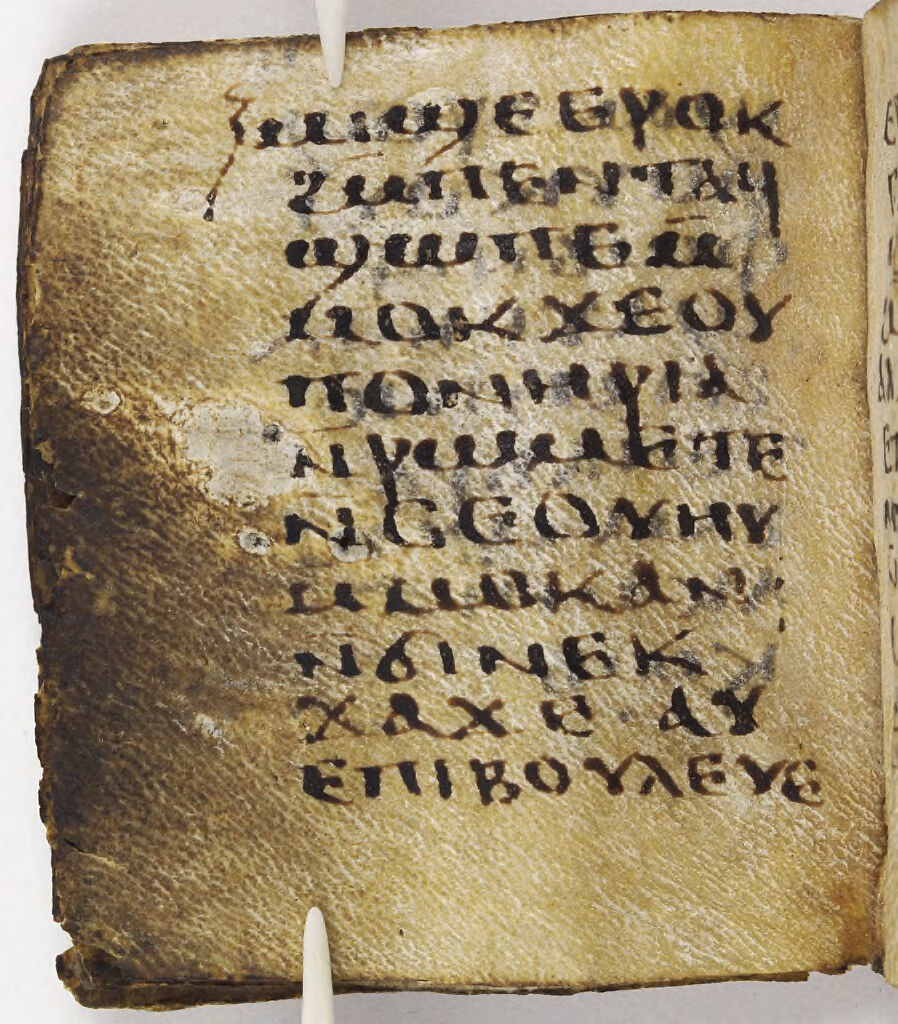 ⲙⲓϣⲉⲉⲣⲟⲕ
ϩⲙ̄ⲡⲉⲛⲧⲁϥ
ϣⲱⲡⲉⲙ̄
ⲙⲟⲕϫⲉⲟⲩ
ⲡⲟⲛⲏⲣⲓⲁ
ⲛ̄ⲣⲱⲙⲉⲧⲉ
ⲛ̄ⲥⲉⲟⲩⲏⲩ
ⲙⲙⲟⲕⲁⲛ
ⲛϭⲓⲛⲉⲕ
ϫⲁϫⲉ ⲁⲩ
ⲉⲡⲓⲃⲟⲩⲗⲉⲩⲉ